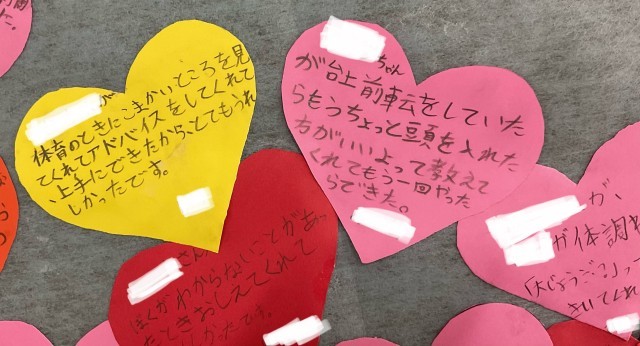 が
体育のときにこまかいところを見
てくれてアドバイスをしてくれて
、上手にできたから、とてもうれ
しかったです。
ちゃん
が台上前転をしていた
らもうちょっと頭を入れた
方がいいよって教えて
くれてもう一回やった
らできた。
さん
ぼくがわからないことがあっ
たときおしえてくれて
しかったです。
が、
が体調
「大じょうご?」っ
きいてくれ